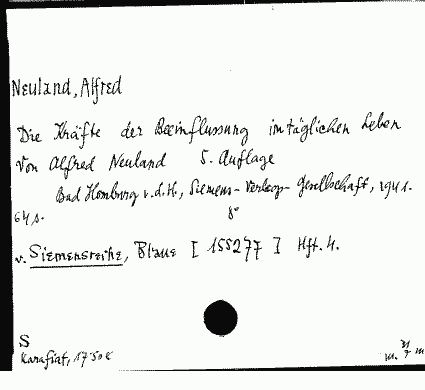 Neuland, Alfred
Die Kräfte der Beeinflussung im täglichen Leben
Von Alfred Neuland 5. Auflage
Bad Homburg v.d.H., Siemens-Verlags-Gesellschaft, 1941.
64 S. 8°
v. Siemensreihe, Blaue [155277] Hft. 4.
S
Karafiat, 1750